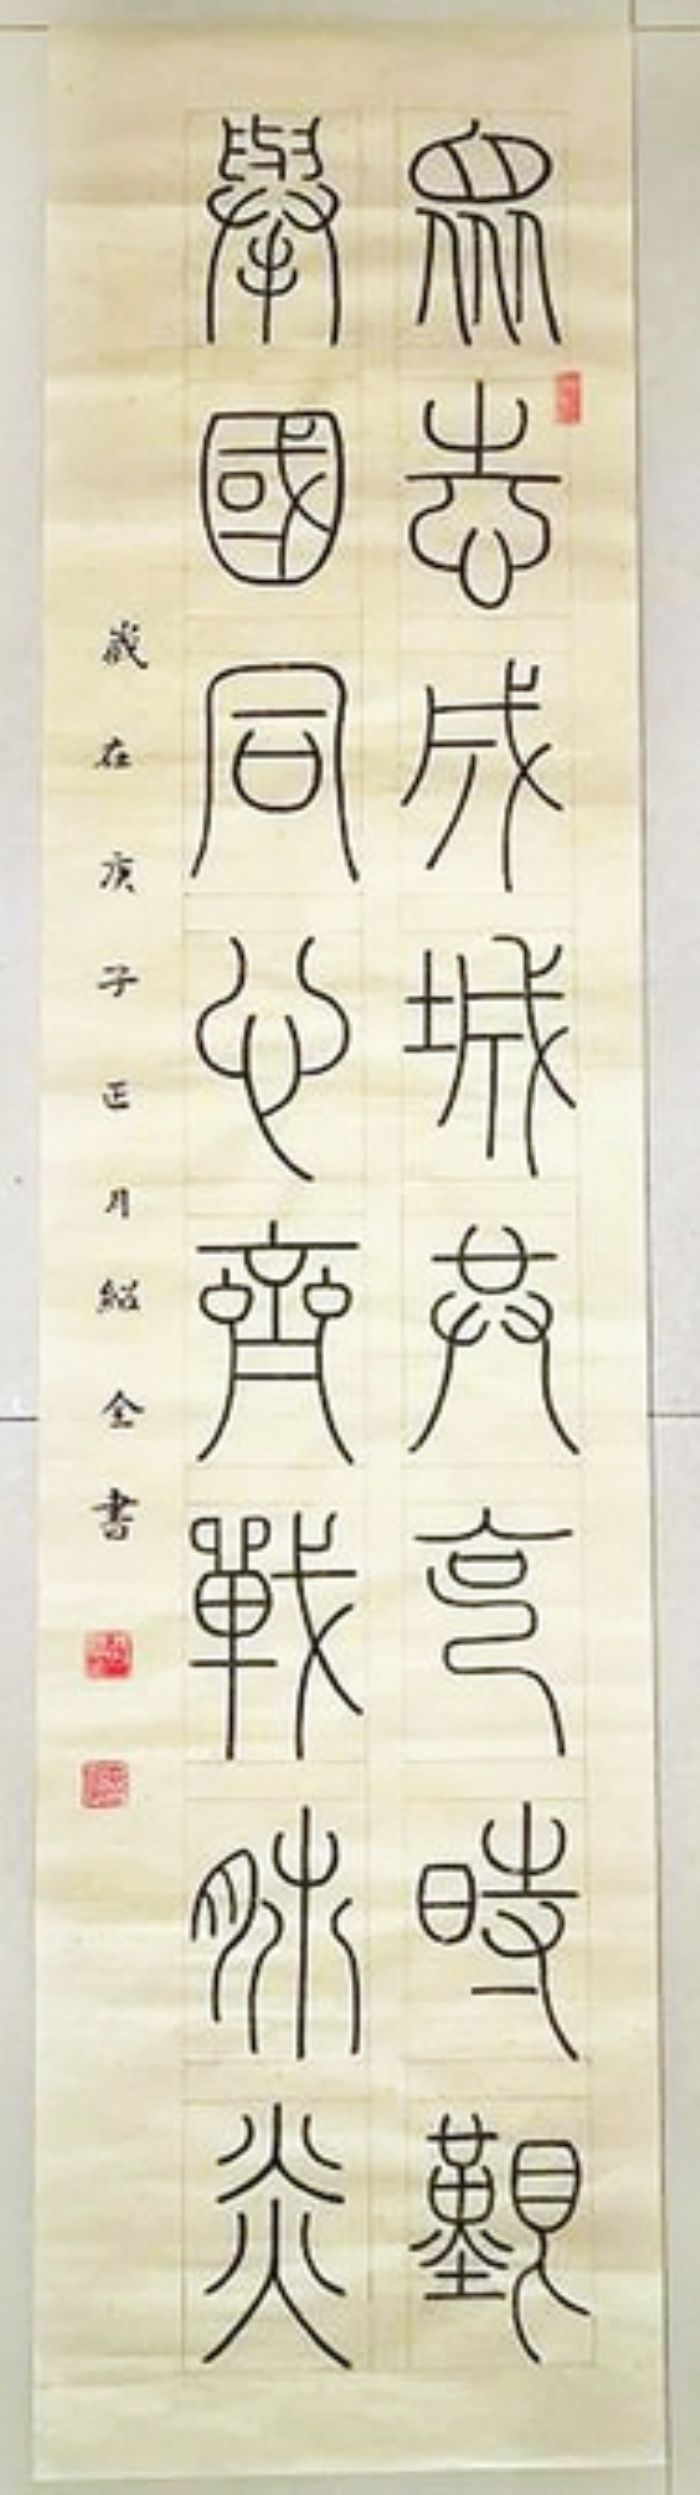 眾志成城共克時艱
舉國同心齊戰肺炎
歲在庚子正月紹全書